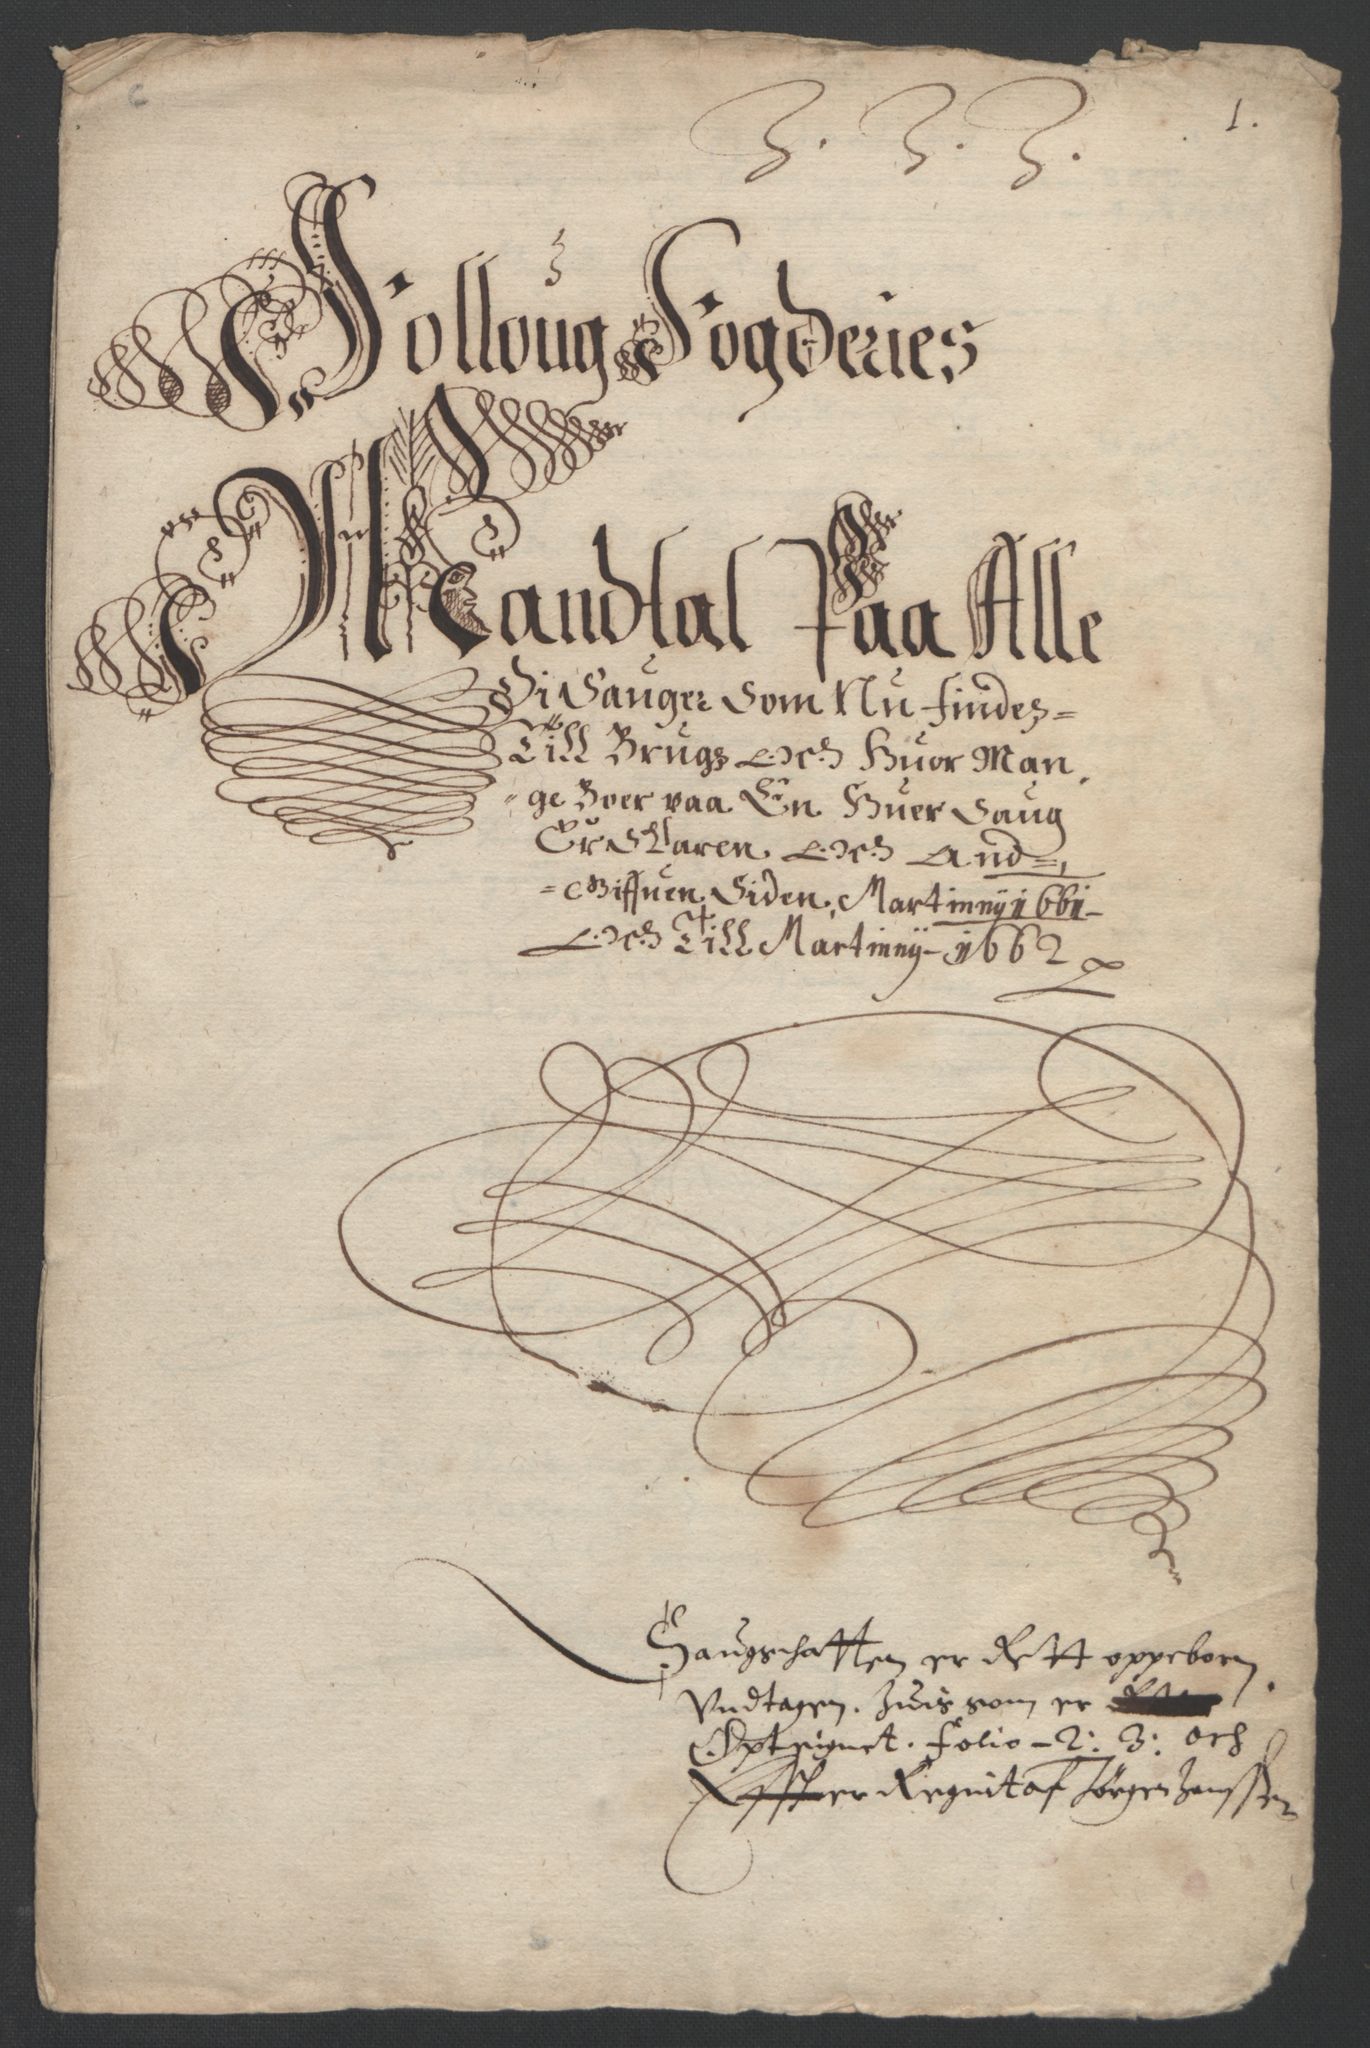 3. 3. 3.
1.
Folloug Fogderies
Mandtal Paa Alle
Di Sauger Som Nu findes=
Till Brugs och Huor Man
=ge Boer paa En Huer Saug
Er Skaren och And=
=Giffuen Siden Martinnÿ 1661-
och Till Martinnÿ-1662
Saugschatten er Rett oppeboren
Vndtagen. huis som er
Opteignet. folio-2: 3: och
er Regnit af Jørgen Janssen